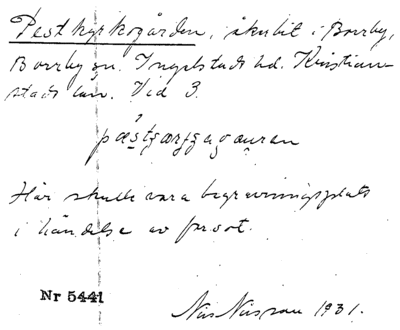 Pestkyrkogården, åkerbit i Borrby,
Borrby sn. Ingelstads hd. Kristian-
stads län. Vid 3.
Här skulle vara begravningsplats
i händelse av pest.
Nr 5441
Nils Nilsson 1931.